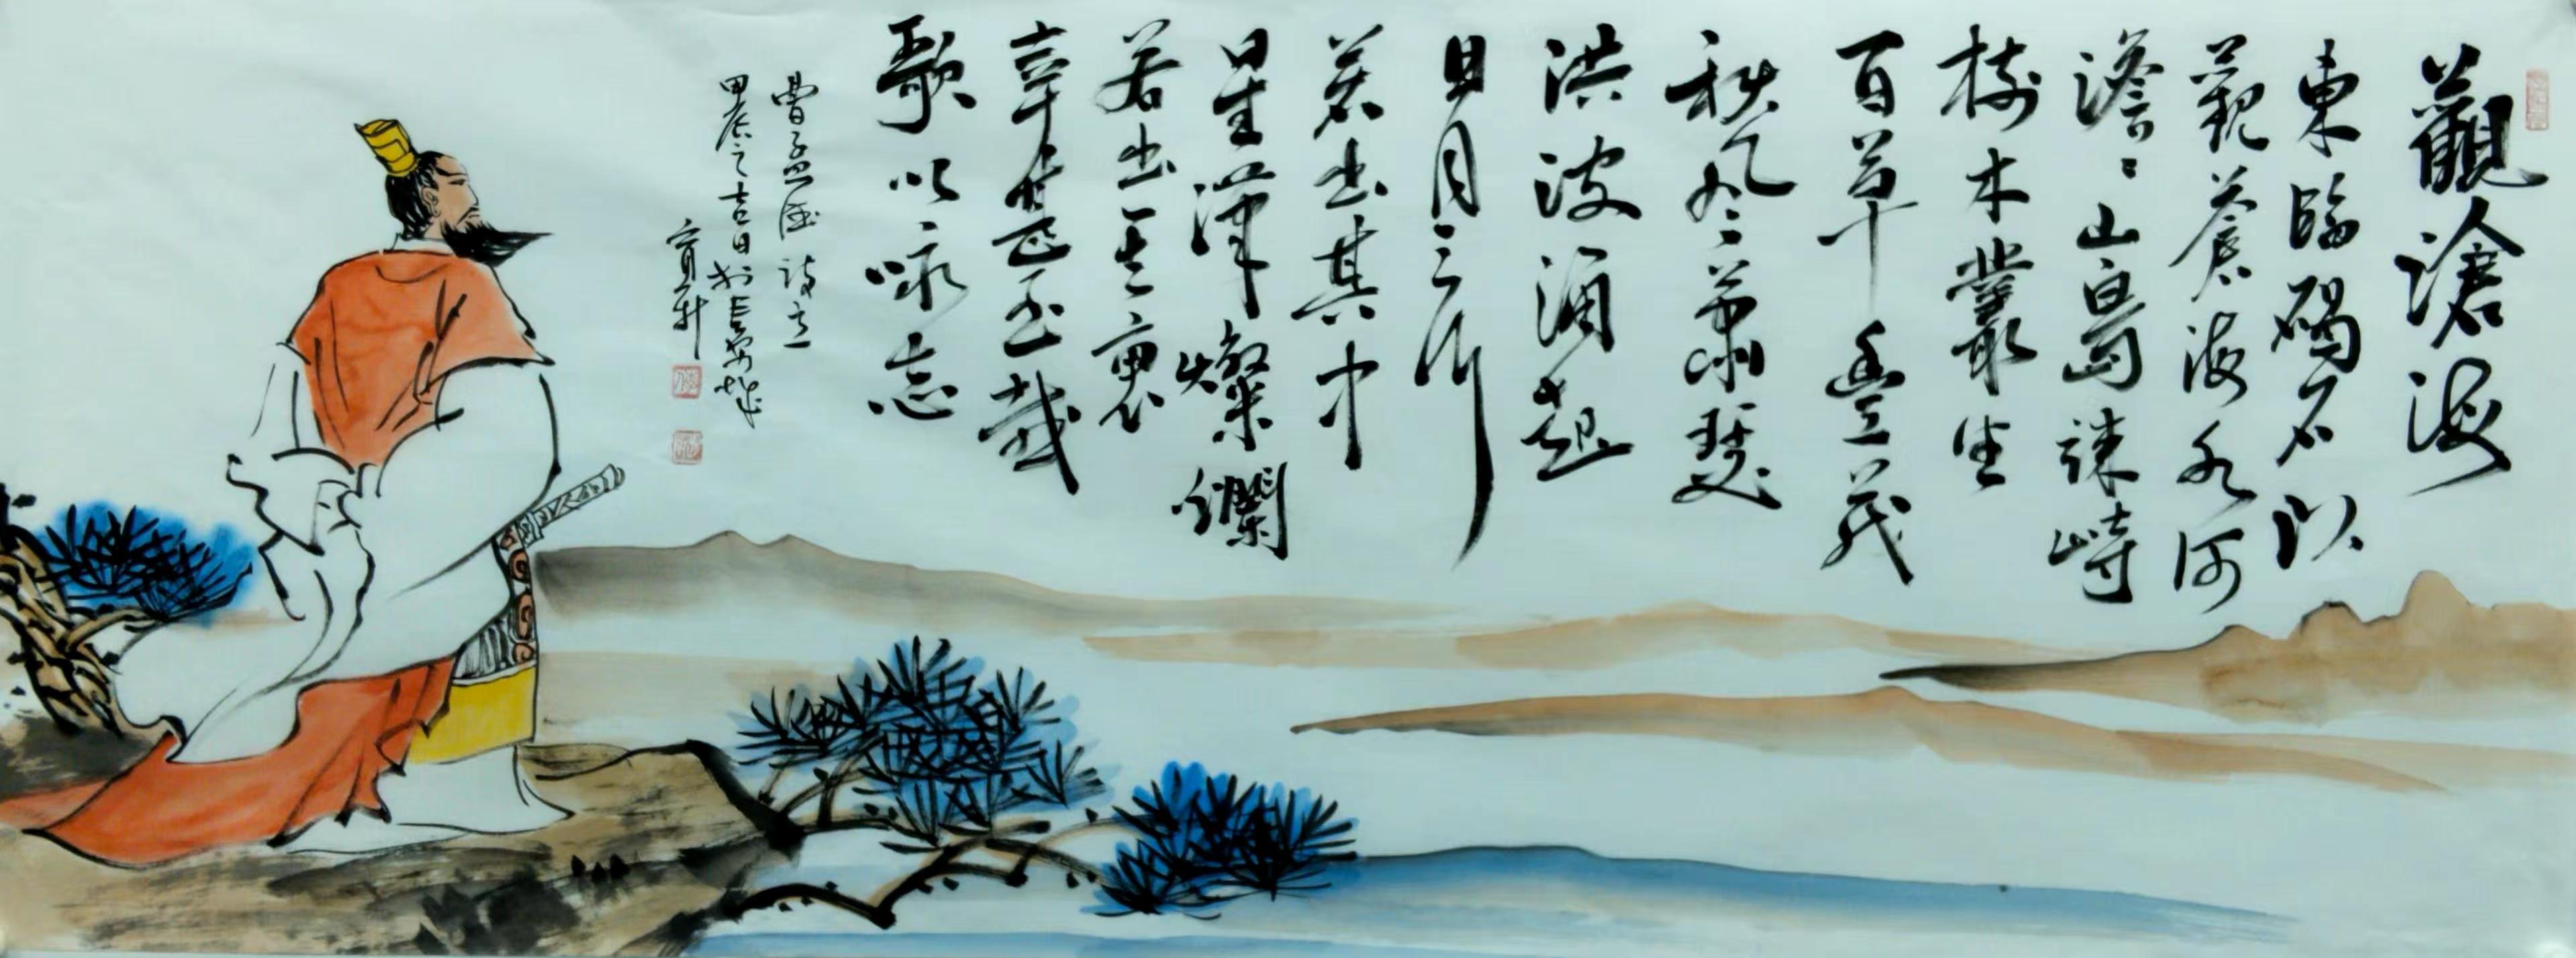 觀滄海
東臨碣石以
觀蒼海水何
澹々山島竦峙
樹木叢生
百草豊茂
秋風蕭瑟
洪波涌起
日月之行
若出其中
星漢燦爛
若出其裏
幸甚至哉
歌以咏志
曹孟德詩
甲辰之吉日於長安